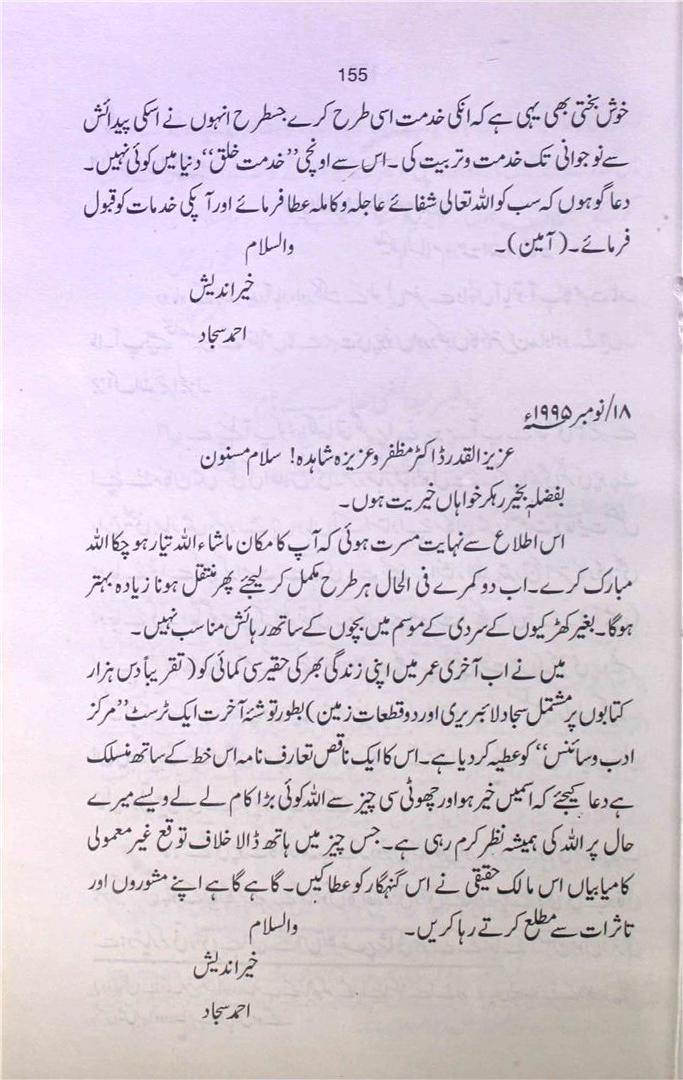 155
خوش بختی بھی یہی ہے کہ انکی خدمت اسی طرح کرے جسطرح انہوں نے اسکی پیدائش
سے نوجوانی تک خدمت و تربیت کی۔ اس سے اونچی ”خدمت خلق“ دنیا میں کوئی نہیں۔
دعا گو ہوں کہ سب کو اللہ تعالی شفائے عاجلہ و کاملہ عطا فرمائے اور آپکی خدمات کو قبول
فرمائے۔ (آمین)۔ والسلام
خیر اندیش
احمد سجاد
۱۸/نومبر ۱۹۹۵ء
عزیز القدر ڈاکٹر مظفر و عزیزہ شاہدہ! سلام مسنون
بفضلہ بخیر رہکر خواہاں خیریت ہوں۔
اس اطلاع سے نہایت مسرت ہوئی کہ آپ کا مکان ماشاء اللہ تیار ہو چکا اللہ
مبارک کرے۔ اب دو کمرے فی الحال ہر طرح مکمل کر لیجئے پھر منتقل ہونا زیادہ بہتر
ہوگا۔ بغیر کھڑکیوں کے سردی کے موسم میں بچوں کے ساتھ رہائش مناسب نہیں۔
میں نے اب آخری عمر میں اپنی زندگی بھر کی حقیر سی کمائی کو (تقریباً دس ہزار
کتابوں پر مشتمل سجاد لائبریری اور دو قطعات زمین) بطور توشئہ آخرت ایک ٹرسٹ ”مرکز
ادب و سائنس“ کو عطیہ کر دیا ہے۔ اس کا ایک ناقص تعارف نامہ اس خط کے ساتھ منسلک
ہے دعا کیجئے کہ اسمیں خیر ہو اور چھوٹی سی چیز سے اللہ کوئی بڑا کام لے لے ویسے میرے
حال پر اللہ کی ہمیشہ نظر کرم رہی ہے۔ جس چیز میں ہاتھ ڈالا خلاف توقع غیر معمولی
کامیابیاں اس مالک حقیقی نے اس گنہگار کو عطا کیں۔ گاہے گاہے اپنے مشوروں اور
تاثرات سے مطلع کرتے رہا کریں۔ والسلام
خیر اندیش
احمد سجاد